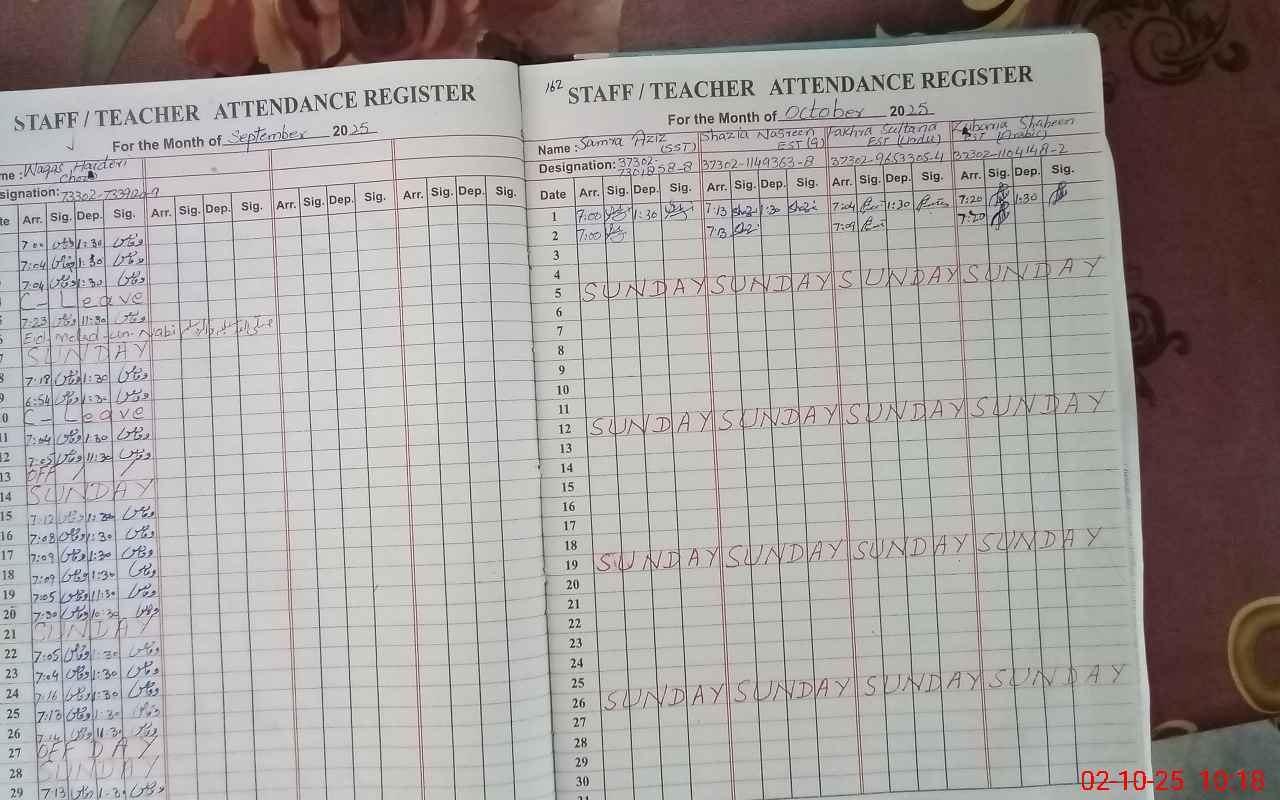 STAFF / TEACHER ATTENDANCE REGISTER
For the Month of September 2025
me : Waqas Haideri
signation: 73302-
te Arr. Sig. Dep. Sig. Arr. Sig. Dep. Sig. Arr. Sig. Dep. Sig. Arr. Sig. Dep. Sig.
7:00 وقاص 1:30 وقاص
7:04 وقاص 1:30 وقاص
7:04 وقاص 1:30 وقاص
C - Leave
7:23 وقاص 11:30 وقاص
Eid melad-un-Nabi
7 SUNDAY
8 7:18 وقاص 1:30 وقاص
9 6:54 وقاص 1:30 وقاص
0 C - Leave
11 7:04 وقاص 1:30 وقاص
12 7:05 وقاص 11:30 وقاص
13 OFF
14 SUNDAY
15 7:12 وقاص 1:30 وقاص
16 7:08 وقاص 1:30 وقاص
17 7:09 وقاص 1:30 وقاص
18 7:09 وقاص 1:30 وقاص
19 7:05 وقاص 11:30 وقاص
20 7:30 وقاص 10:30 وقاص
21 SUNDAY
22 7:05 وقاص 1:30 وقاص
23 7:04 وقاص 1:30 وقاص
24 7:16 وقاص 1:30 وقاص
25 7:13 وقاص 1:30 وقاص
26 وقاص 11:30 وقاص
27 OFF DAY
28 SUNDAY
29 7:13 وقاص 1:30 وقاص
162
STAFF / TEACHER ATTENDANCE REGISTER
For the Month of October 2025
Name : Samra Aziz (SST) Shazia Nasreen EST (G) Fakhra Sultana EST (Urdu) Shaheen EST (Arabic)
Designation: 37302-1149363-8 37302-9653305-4 37302-1104148-2
Date Arr. Sig. Dep. Sig. Arr. Sig. Dep. Sig. Arr. Sig. Dep. Sig. Arr. Sig. Dep. Sig.
1 7:00 1:30 7:13 1:30 7:04 1:30 7:20 1:30
2 7:00 7:13 7:09 7:20
3
4
5 SUNDAY SUNDAY SUNDAY SUNDAY
6
7
8
9
10
11
12 SUNDAY SUNDAY SUNDAY SUNDAY
13
14
15
16
17
18
19 SUNDAY SUNDAY SUNDAY SUNDAY
20
21
22
23
24
25
26 SUNDAY SUNDAY SUNDAY SUNDAY
27
28
29
30
02-10-25 10:18